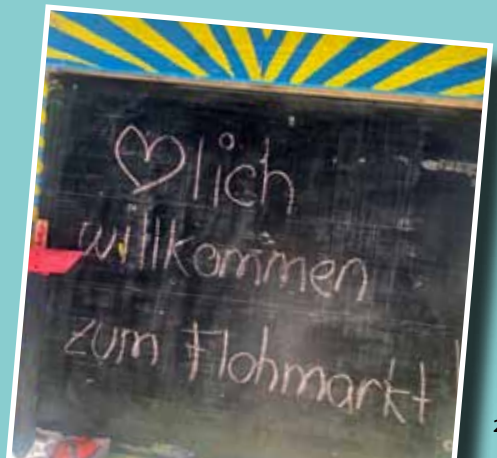 ♡lich
willkommen
zum Flohmarkt!
2